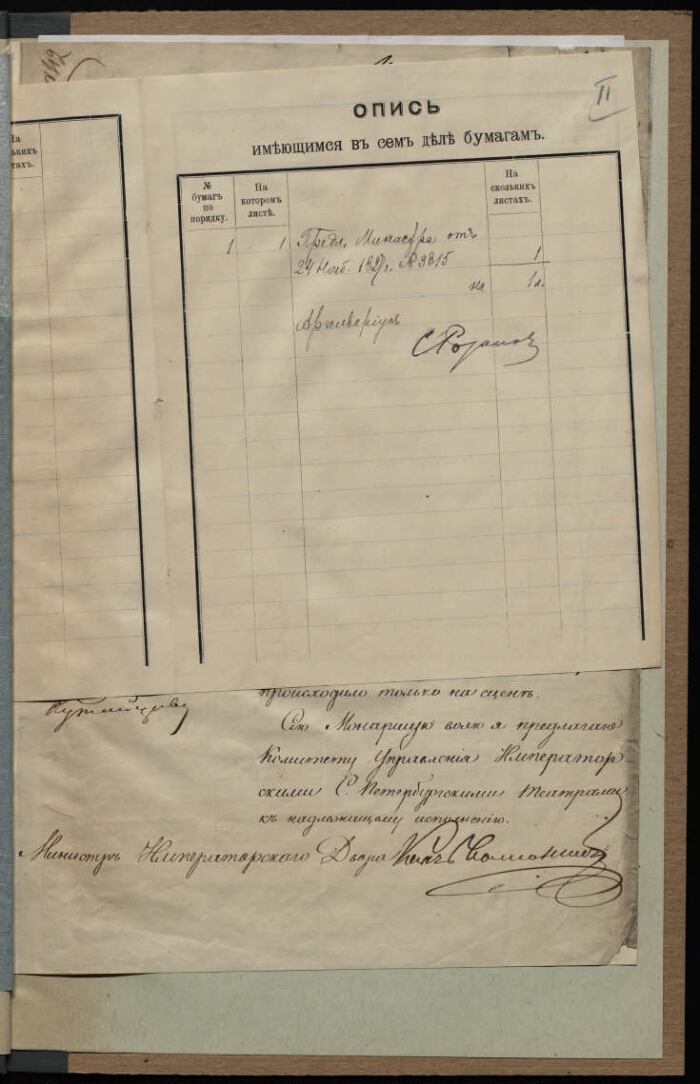 II
ОПИСЬ
имѣющимся въ семъ дѣлѣ бумагамъ.
№ бумагъ по порядку.
На которомъ листѣ.
На сколькихъ листахъ.
1 1 Предл. Министра отъ
24 Нояб. 1827 г. № 3815 1
на 1 л.
Архиваріусъ
происходило только на сценѣ.
Сію Монаршую волю я предлагаю
Комитету Управленія Император
скими С. Петербургскими Театрами
къ надлежащему исполненію.
Министръ Императорскаго Двора Князь Волконскій